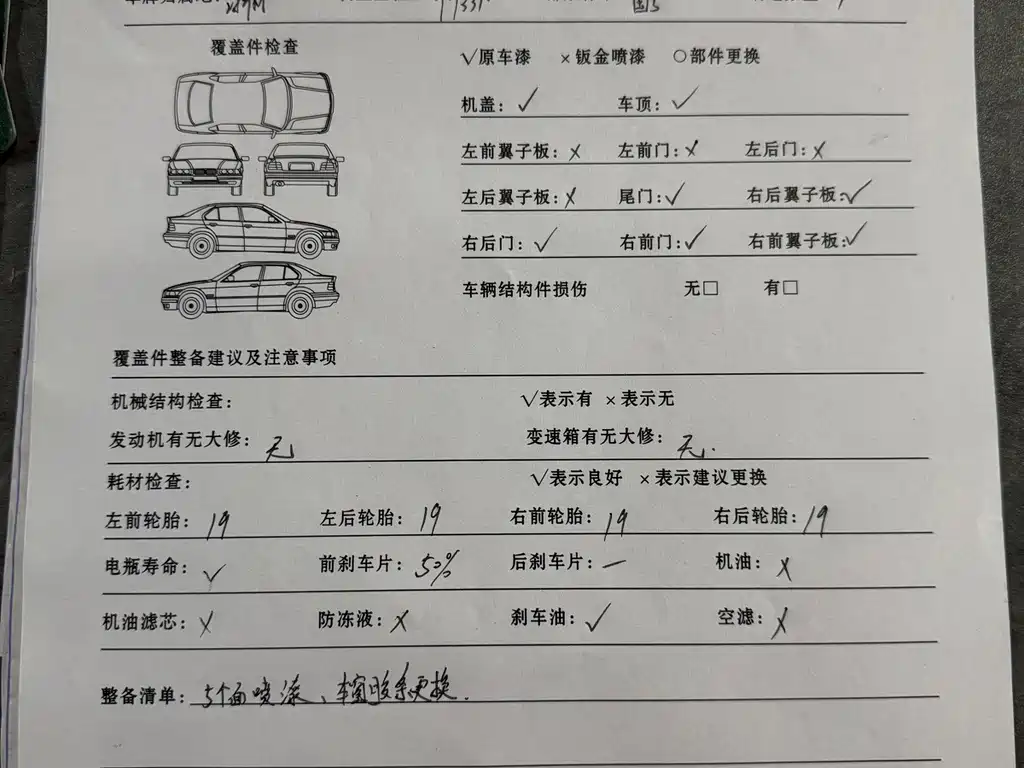 覆盖件检查
√原车漆 ×钣金喷漆 ○部件更换
机盖:√ 车顶:√
左前翼子板:× 左前门:× 左后门:×
左后翼子板:× 尾门:√ 右后翼子板:√
右后门:√ 右前门:√ 右前翼子板:√
车辆结构件损伤 无□ 有□
覆盖件整备建议及注意事项
机械结构检查: √表示有 ×表示无
发动机有无大修:无 变速箱有无大修:无.
耗材检查: √表示良好 ×表示建议更换
左前轮胎:19 左后轮胎:19 右前轮胎:19 右后轮胎:19
电瓶寿命:√ 前刹车片:50% 后刹车片:— 机油:×
机油滤芯:× 防冻液:× 刹车油:√ 空滤:×
整备清单:5个面喷漆、车窗胶条更换.